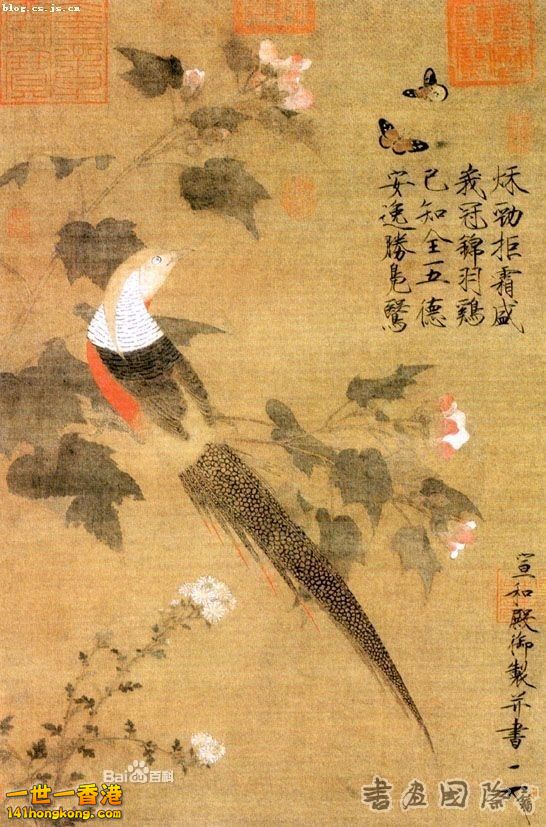 blog.cs.js.cn
秋勁拒霜盛
峩冠錦羽鷄
已知全五德
安逸勝鳧鷖
宣和殿御製并書
Bai百科
一世一香港
141hongkong.com
書画國際